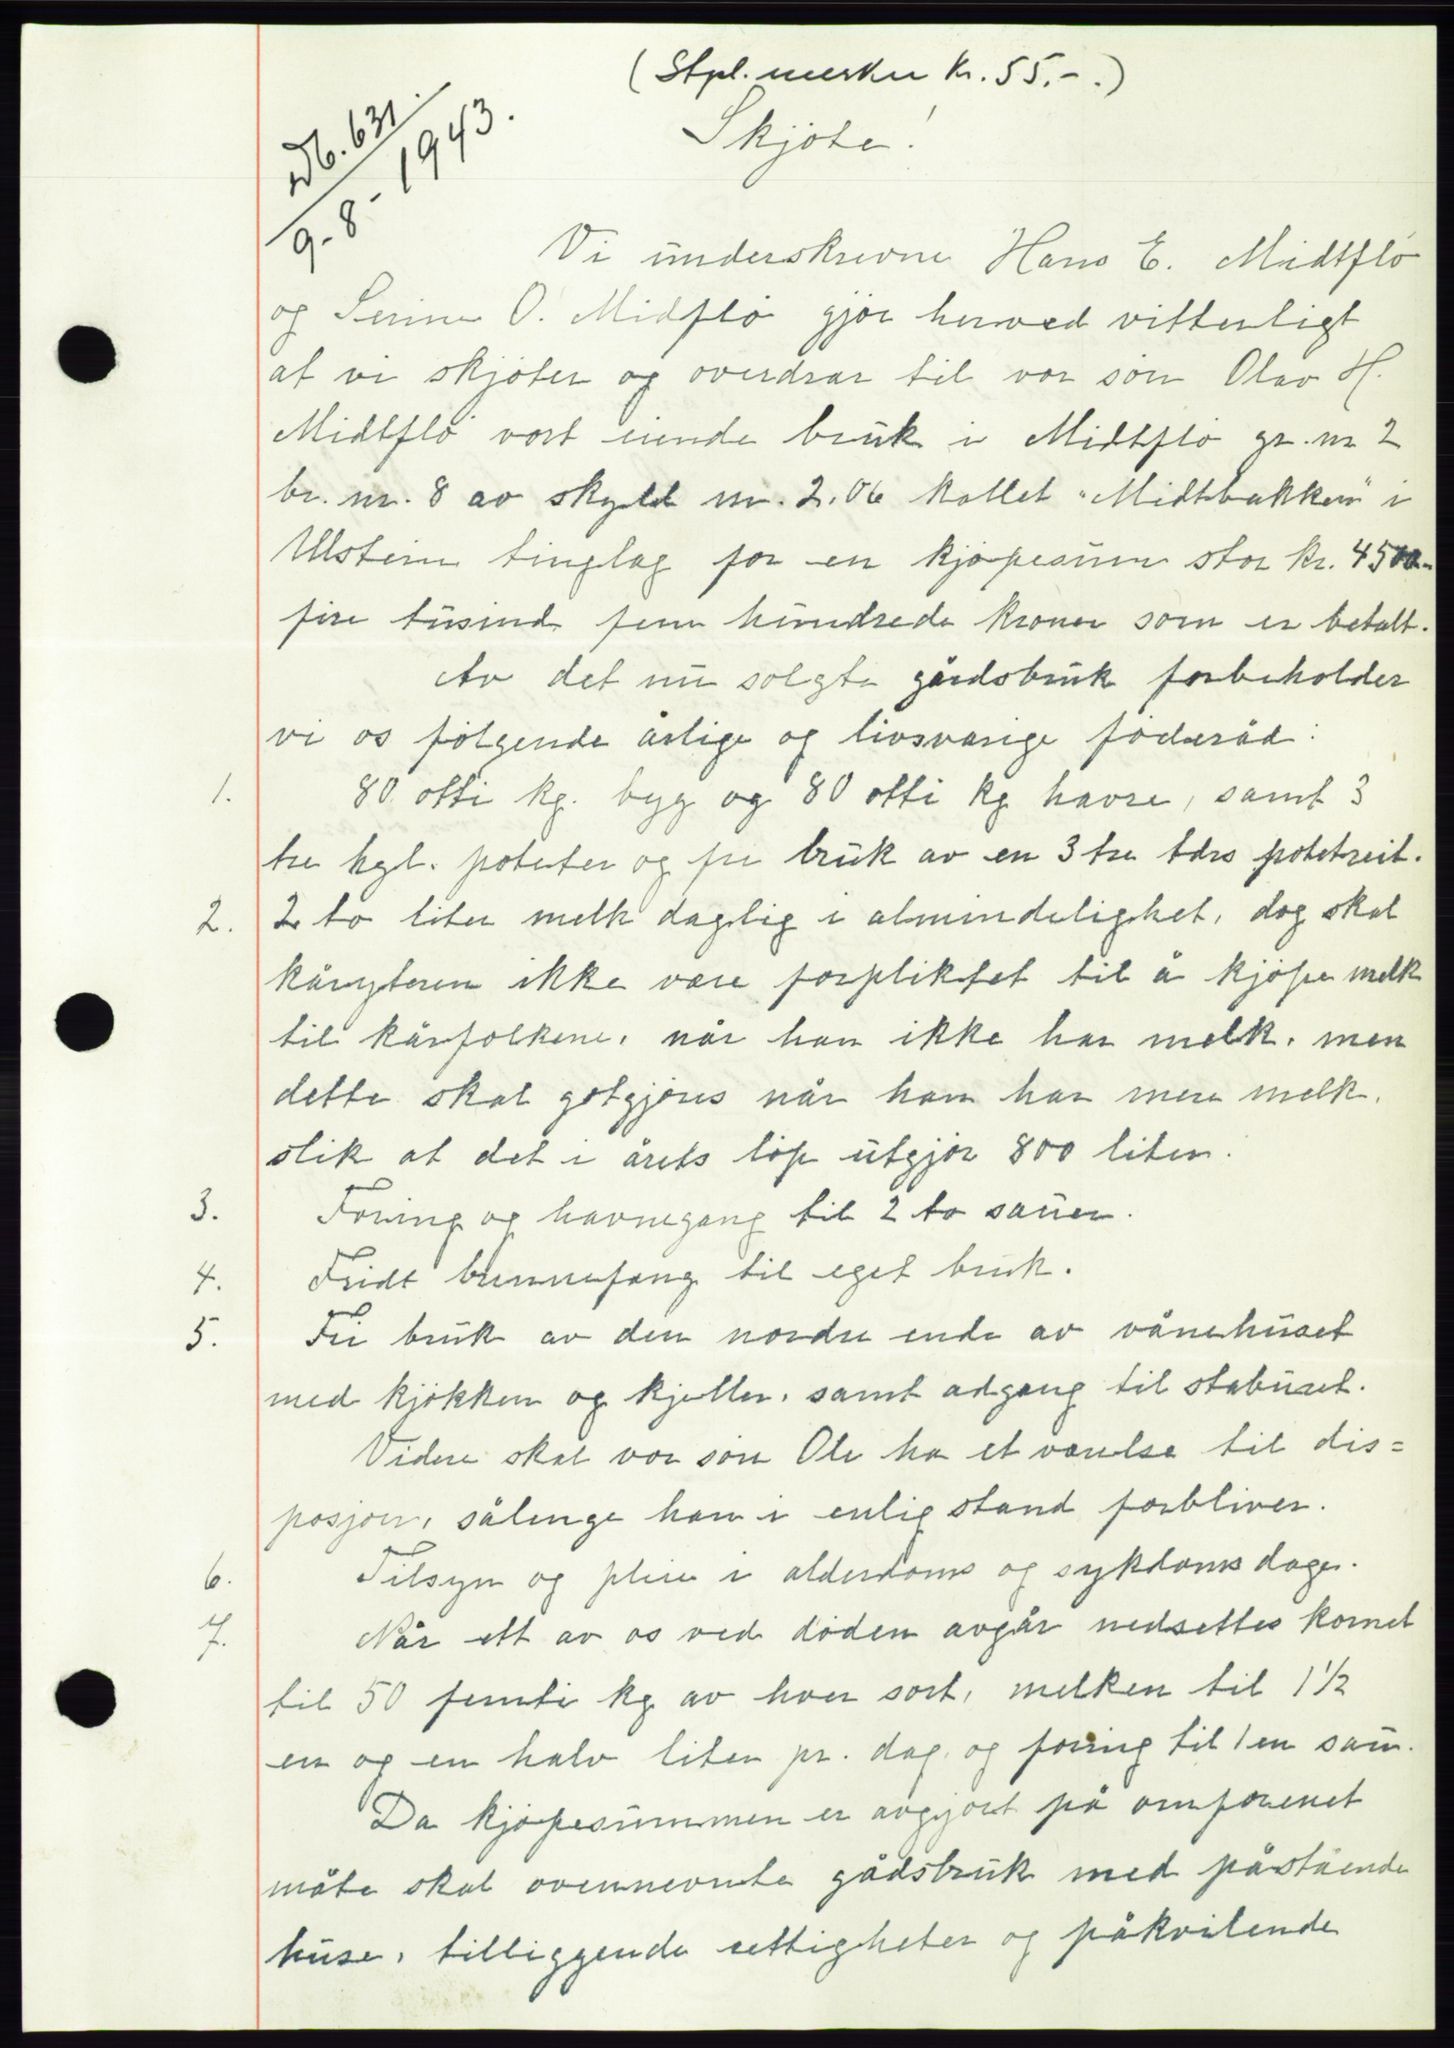 (Stpl. merker kr. 55.-.)
Db. 631.
9-8-1943.
Skjøte!
Vi underskrevne Hans E. Midtflø
og Serine O. Midflø gjør herved vitterligt
at vi skjøter og overdrar til vor søn Olav H.
Midtflø vort eiende bruk i Midtflø gr. nr 2
br. nr. 8 av skyld m. 2.06 kallet "Midtbakken" i
Ulstein tinglag for en kjøpesum stor kr. 4500.-
fire tusind fem hundrede kroner som er betalt.
Av det nu solgte gårdsbruk forbeholder
vi os følgende årlige og livsvarige føderåd:
1. 80 otti kg. byg og 80 otti kg havre, samt 3
tre hgl. poteter og fri bruk av en 3 tre tdrs potetreit.
2. 2 to liter melk daglig i almindelighet, dog skal
kårytern ikke være forpliktet til å kjøpe melk
til kårfolkene, når han ikke har melk, men
dette skal gotgjøres når han har mere melk,
slik at det i årets løp utgjør 800 liter.
3. Foring og havnegang til 2 to sauer.
4. Fridt brennefang til eget bruk.
5. Fri bruk av den nordre ende av vånehuset
med kjøkken og kjeller, samt adgang til staburet.
Videre skal vor søn Ole ha et værelse til dis=
posjon, sålenge han i enlig stand forbliver.
6. Tilsyn og pleie i alderdoms og sykdoms dage.
7. Når ett av os ved døden avgår nedsettes kornet
til 50 femti kg av hver sort, melken til 1½
en og en halv liter pr. dag, og foring til 1 en sau.
Da kjøpesummen er avgjort på omforenet
måte skal ovennevnte gådsbruk med påstående
huse, tilliggende rettigheter og påkvilende